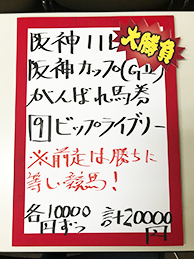 阪神11R
大勝負
阪神カップ(GⅡ)
がんばれ馬券
9 ビップライブリー
※前走は勝ちに
等しい競馬!
各10000 計20000
円ずつ 円